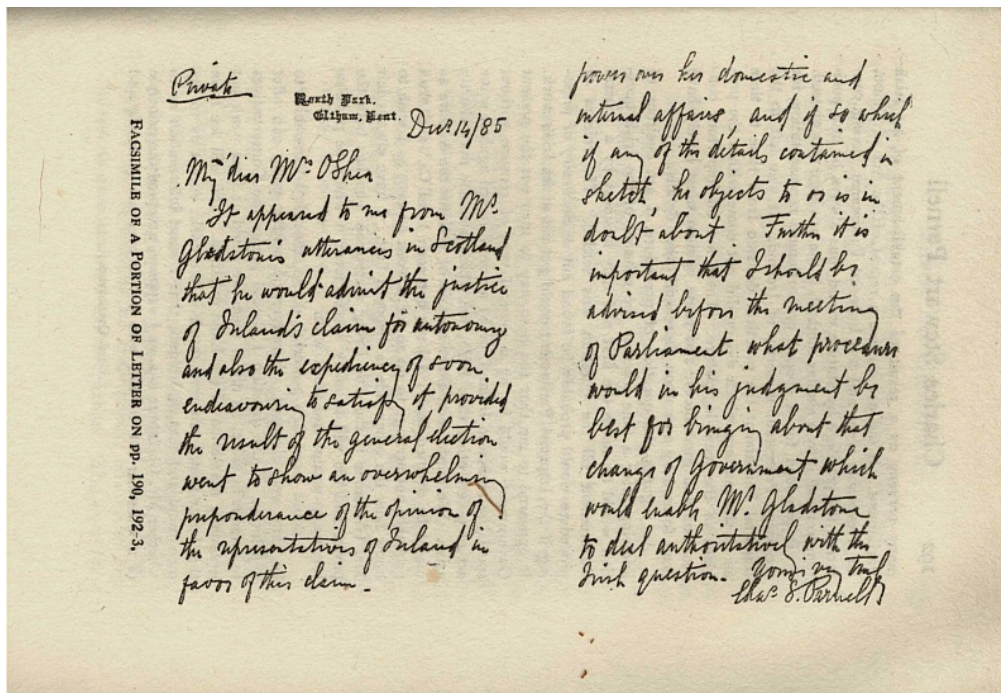 Private
North Park,
Eltham, Kent.
Decr 14/85
My dear Mrs O'Shea
It appeared to me from Mr
Gladstone's utterances in Scotland
that he would admit the justice
of Ireland's claim for autonomy
and also the expediency of soon
endeavouring to satisfy it provided
the result of the general election
went to show an overwhelming
preponderance of the opinion of
the representatives of Ireland in
favor of this claim.
power over her domestic and
internal affairs, and if so which
if any of the details contained in
sketch, he objects to or is in
doubt about. Further it is
important that I should be
advised before the meeting
of Parliament what procedure
would in his judgment be
best for bringing about that
change of Government which
would enable Mr Gladstone
to deal authoritatively with the
Irish question. Yours very truly
Chas S. Parnell
FACSIMILE OF A PORTION OF LETTER ON pp. 190, 192-3.